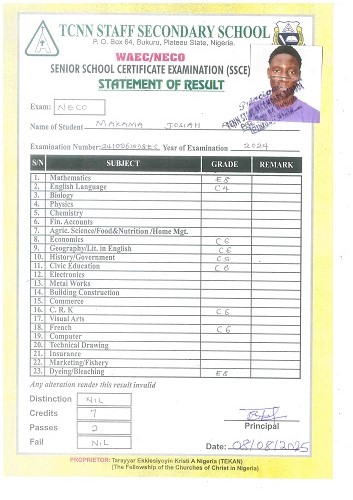 TCNN STAFF SECONDARY SCHOOL
P. O. Box 64, Bukuru, Plateau State, Nigeria.
WAEC/NECO
SENIOR SCHOOL CERTIFICATE EXAMINATION (SSCE)
STATEMENT OF RESULT
Exam: NECO
Name of Student MAKAMA JOSIAH
Examination Number: Year of Examination 2024
S/N SUBJECT GRADE REMARK
1. Mathematics E8
2. English Language C4
3. Biology
4. Physics
5. Chemistry
6. Fin. Accounts
7. Agric. Science/Food&Nutrition/Home Mgt.
8. Economics C6
9. Geography/Lit. in English C6
10. History/Government C5
11. Civic Education C6
12. Electronics
13. Metal Works
14. Building Construction
15. Commerce
16. C. R. K C6
17. Visual Arts
18. French C6
19. Computer
20. Technical Drawing
21. Insurance
22. Marketing/Fishery
23. Dyeing/Bleaching E8
Any alteration render this result invalid
Distinction NIL
Credits 7
Passes 2
Fail NIL
Principal
Date: 08/08/2025
PROPRIETOR: Tarayyar Ekklesiyoyin Kristi A Nigeria (TEKAN)
(The Fellowship of the Churches of Christ in Nigeria)